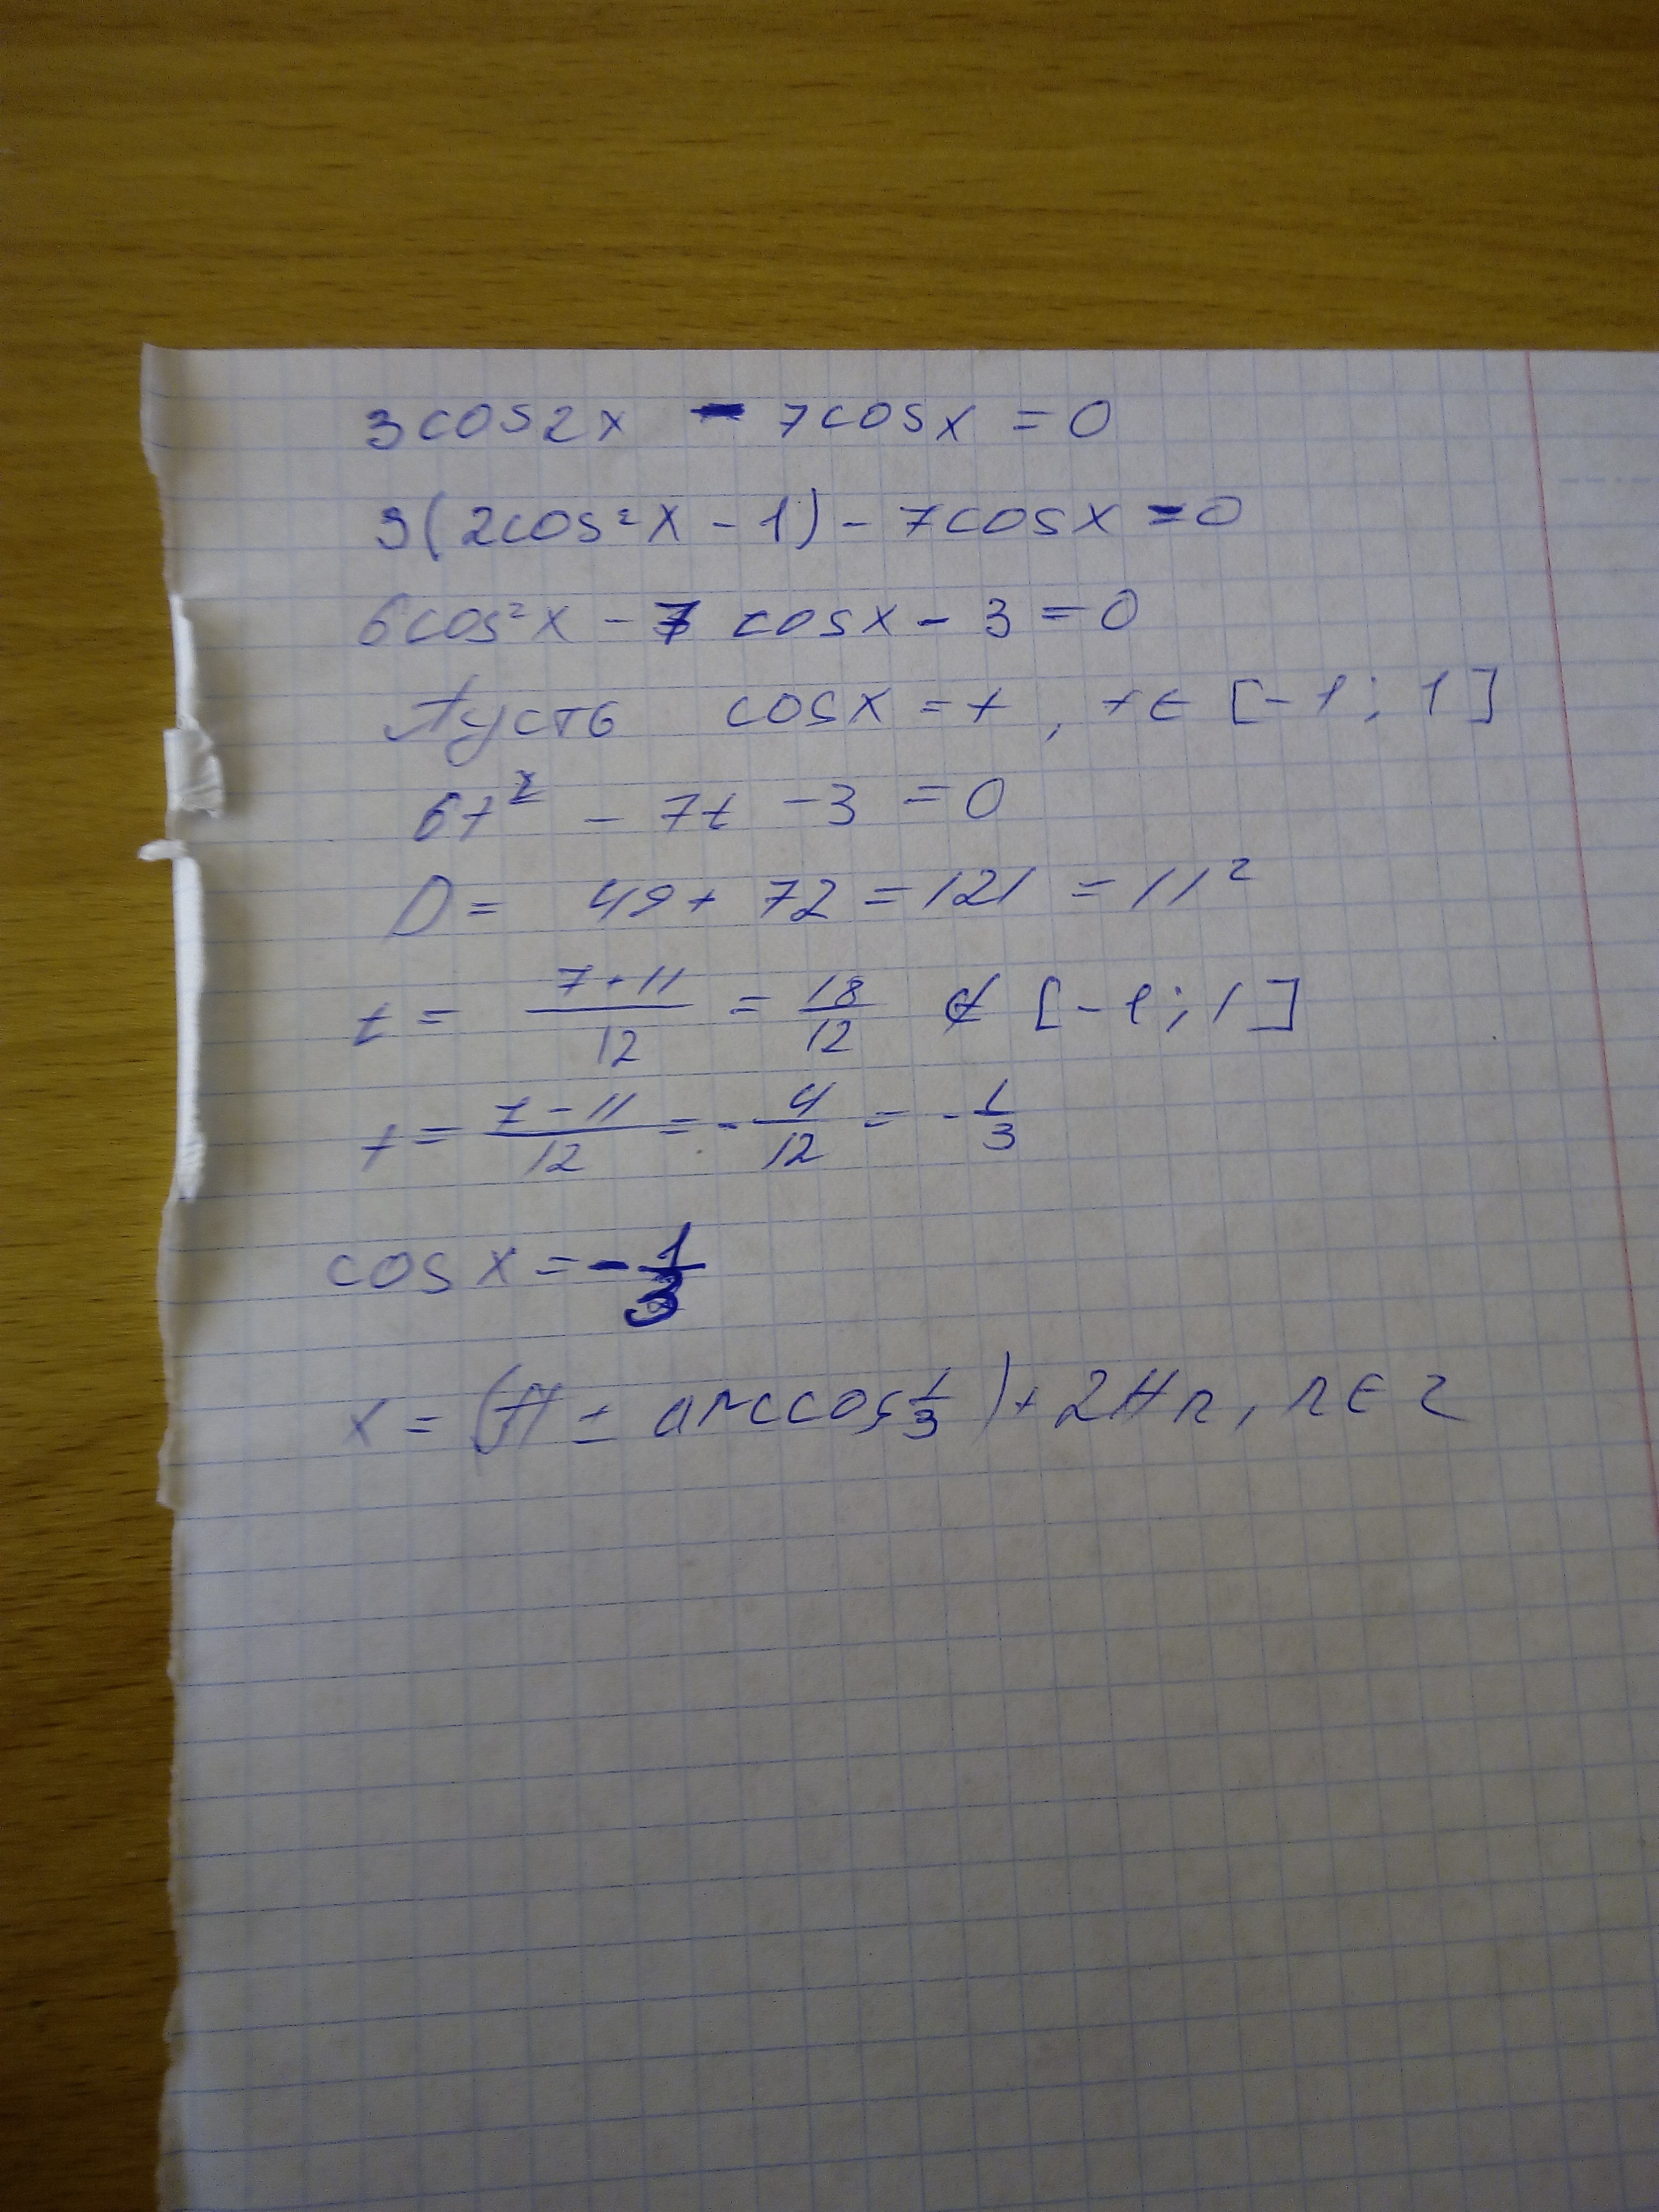 3cos2x - 7cosx = 0
3(2cos²x - 1) - 7cosx = 0
6cos²x - 7 cosx - 3 = 0
Пусть cosx = t, t ∈ [-1; 1]
6t² - 7t - 3 = 0
D = 49 + 72 = 121 = 11²
t = (7+11)/12 = 18/12 ∉ [-1; 1]
t = (7-11)/12 = -4/12 = -1/3
cosx = -1/3
x = (π ± arccos 1/3) + 2πn, n ∈ Z